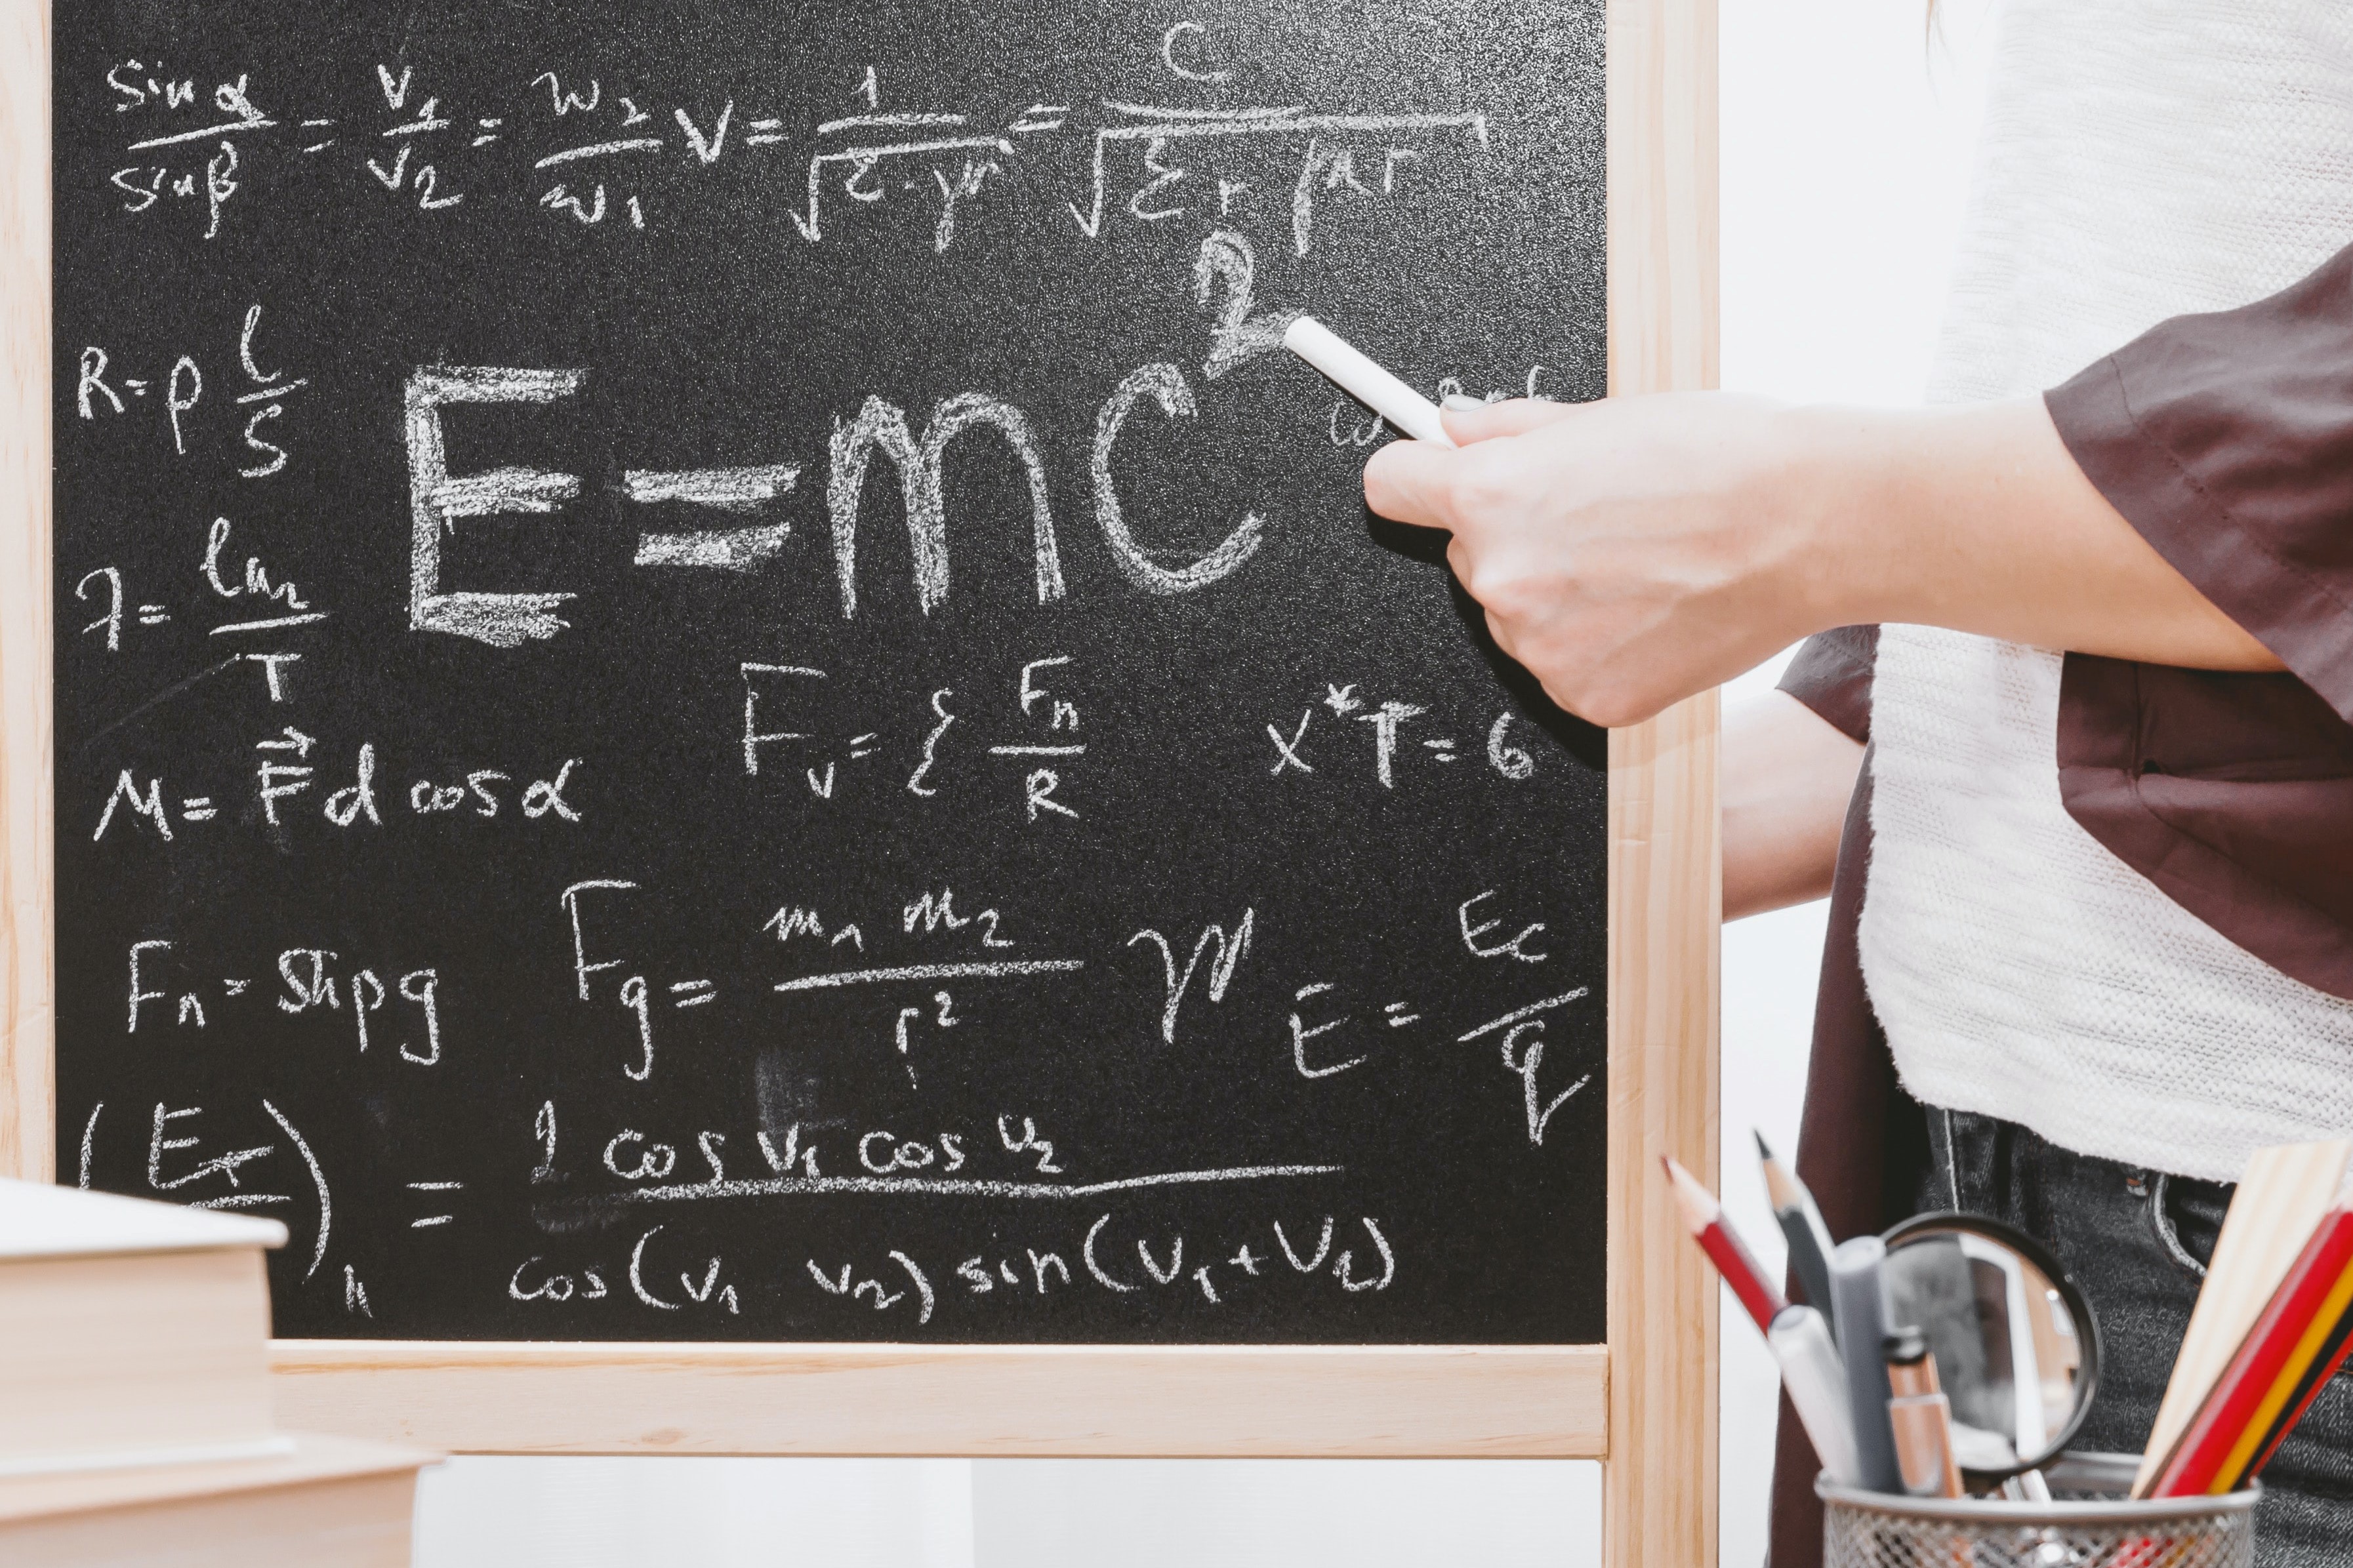 sin α / sin β = v1 / v2 = w2 / w1 V = 1 / √(ε · μ) = C / √(εr μr)
R = ρ l / S
E = mc²
ω
λ = ln2 / T
Fv = { Fn / R
x*T = 6
M = F⃗ d cos α
Fn = Shρg
Fg = m1 m2 / r² γ
E = Ec / q
(ET)n = 2 cos v1 cos v2 / cos(v1 v2) sin(v1 + v2)